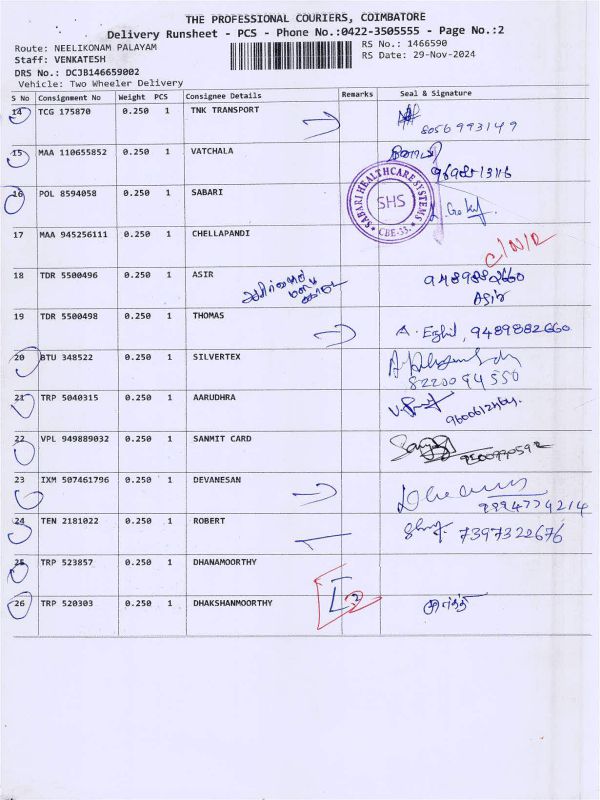 THE PROFESSIONAL COURIERS, COIMBATORE
Delivery Runsheet - PCS - Phone No.:0422-3505555 - Page No.:2
Route: NEELIKONAM PALAYAM RS No.: 1466590
Staff: VENKATESH RS Date: 29-Nov-2024
DRS No.: DCJB146659002
Vehicle: Two Wheeler Delivery
S No Consignment No Weight PCS Consignee Details Remarks Seal & Signature
14 TCG 175870 0.250 1 TNK TRANSPORT
8056993149
15 MAA 110655852 0.250 1 VATCHALA
16 POL 8594058 0.250 1 SABARI
SABARI HEALTHCARE SYSTEMS
SHS
CBE-33.
17 MAA 945256111 0.250 1 CHELLAPANDI
C/N/R
18 TDR 5500496 0.250 1 ASIR 9489882660
Asir
19 TDR 5500498 0.250 1 THOMAS A. Ezhil, 9489882660
20 BTU 348522 0.250 1 SILVERTEX
8220094550
21 TRP 5040315 0.250 1 AARUDHRA
22 VPL 949889032 0.250 1 SANMIT CARD
23 IXM 507461796 0.250 1 DEVANESAN
9994774214
24 TEN 2181022 0.250 1 ROBERT 7397322676
25 TRP 523857 0.250 1 DHANAMOORTHY
26 TRP 520303 0.250 1 DHAKSHANMOORTHY